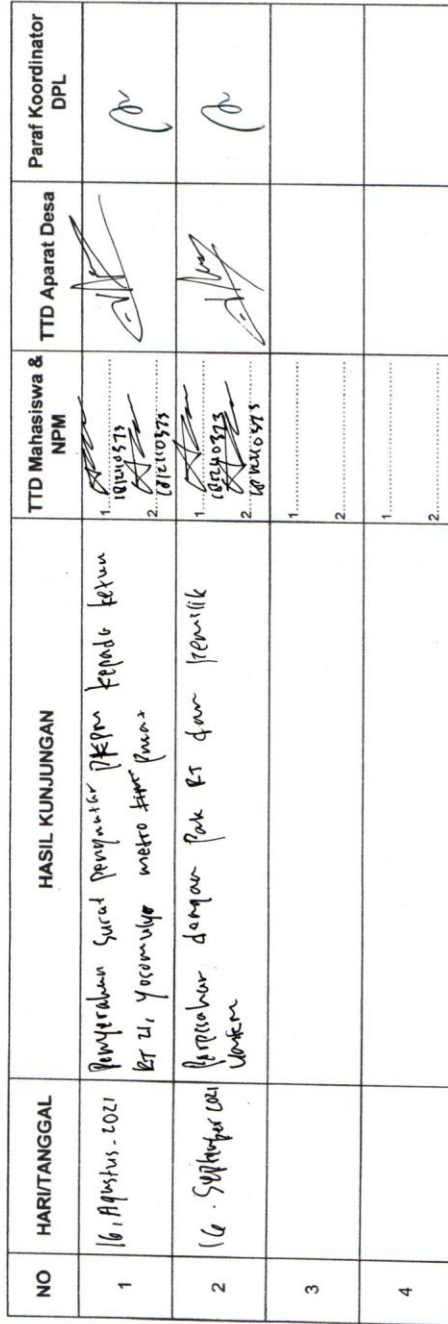 NO HARI/TANGGAL HASIL KUNJUNGAN TTD Mahasiswa & NPM TTD Aparat Desa Paraf Koordinator DPL
1 16, Agustus - 2021 Penyerahan Surat Pengantar PKPM kepada ketua
RT 21, Yosomulyo metro Pusat
1.
1812110373
2.
1812110373
2 16 . September 2021 Perpisahan dengan Pak RT dan pemilik
UMKM
1.
1812110373
2.
1812110373
3
1.
2.
4
1.
2.